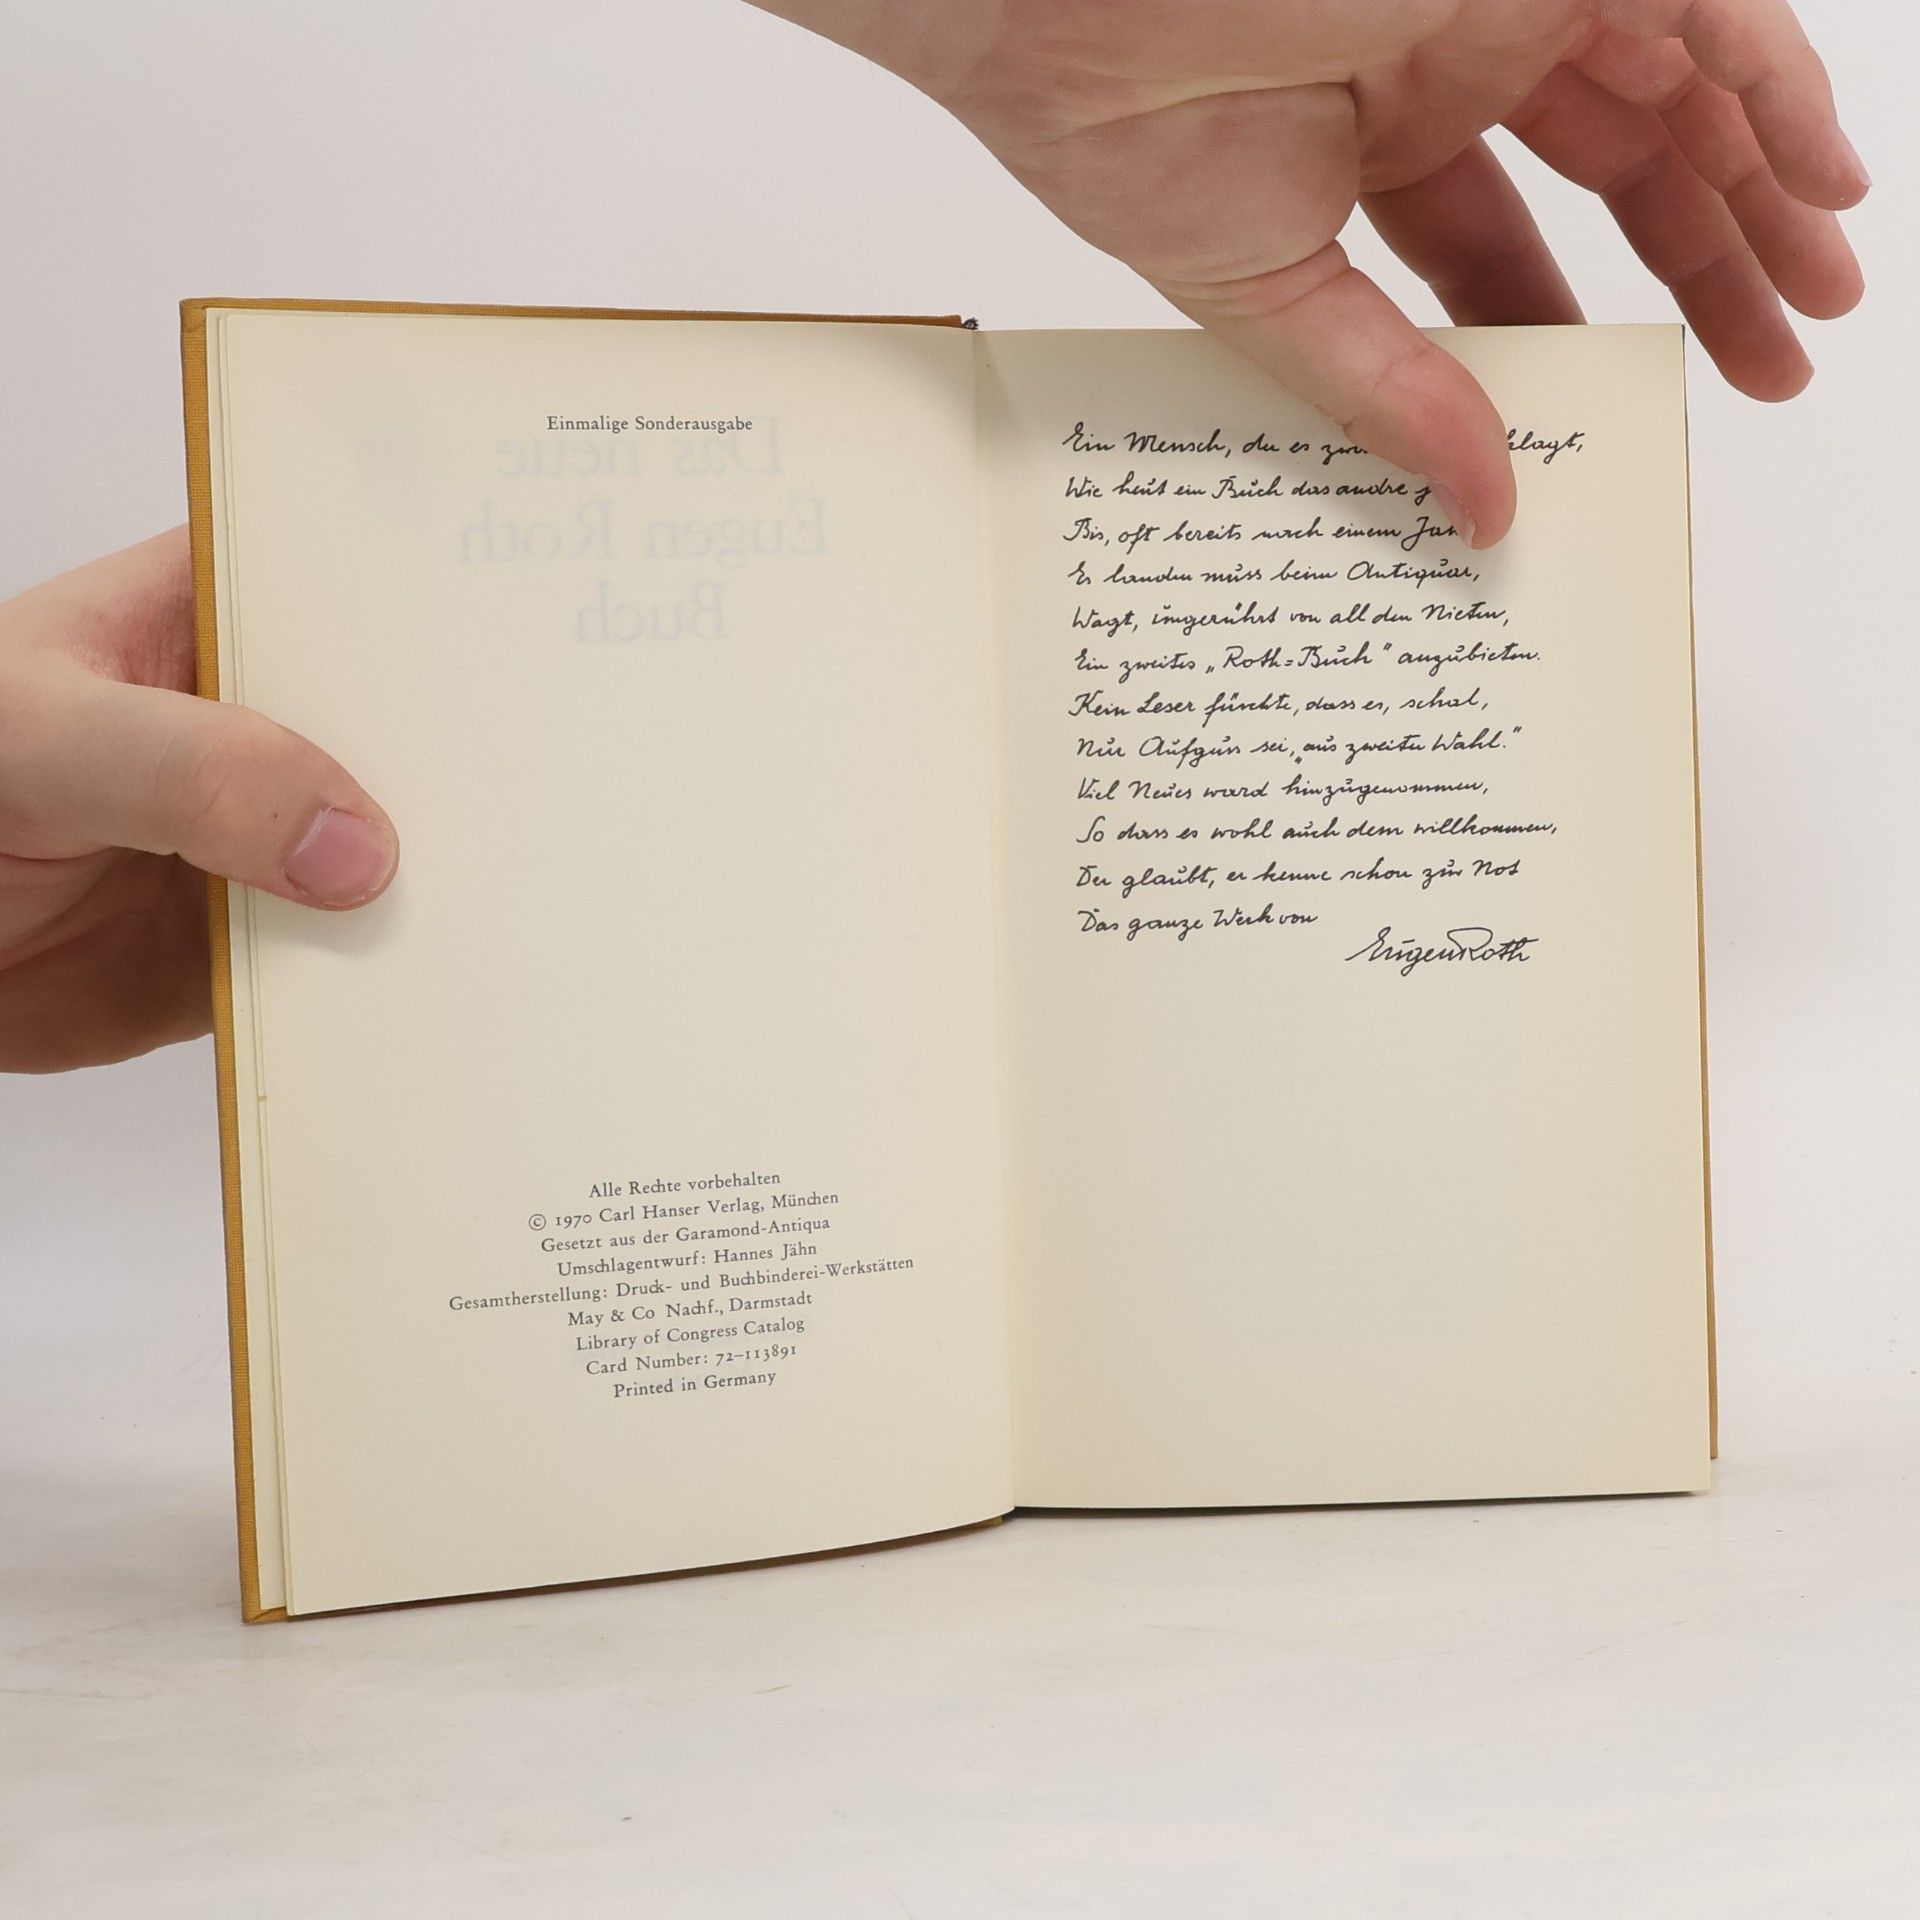 Einmalige Sonderausgabe
Das neue
Eugen Roth
Buch
Alle Rechte vorbehalten
© 1970 Carl Hanser Verlag, München
Gesetzt aus der Garamond-Antiqua
Umschlagentwurf: Hannes Jähn
Gesamtherstellung: Druck- und Buchbinderei-Werkstätten
May & Co Nachf., Darmstadt
Library of Congress Catalog
Card Number: 72–113891
Printed in Germany
Ein Mensch, der es
Wie heut ein Buch das andre
Bis, oft bereits nach einem
Es landen muss beim Antiquar,
Wagt, ungerührt von all den Nieten,
Ein zweites „Roth=Buch" anzubieten.
Kein Leser fürchte, dass es, schal,
Nur Aufguss sei, „aus zweiter Wahl."
Viel Neues ward hinzugenommen,
So dass es wohl auch dem willkommen,
Der glaubt, er kenne schon zur Not
Das ganze Werk von
Eugen Roth